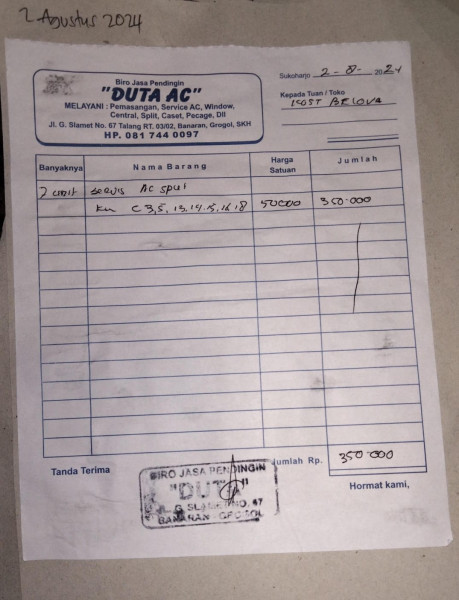 2 Agustus 2024
Biro Jasa Pendingin
"DUTA AC"
MELAYANI : Pemasangan, Service AC, Window,
Central, Split, Caset, Pecage, Dll
Jl. G. Slamet No. 67 Talang RT. 03/02, Banaran, Grogol, SKH
HP. 081 744 0097
Sukoharjo 2-8-2024
Kepada Tuan / Toko
KOST BELOVA
Banyaknya Nama Barang Harga Satuan Jumlah
7 unit servis AC split
C 3, 5, 13, 14, 15, 16, 18 50000 350.000
Jumlah Rp. 350.000
Tanda Terima
Hormat kami,
BIRO JASA PENDINGIN
"DUTA"
BANARAN - GROGOL